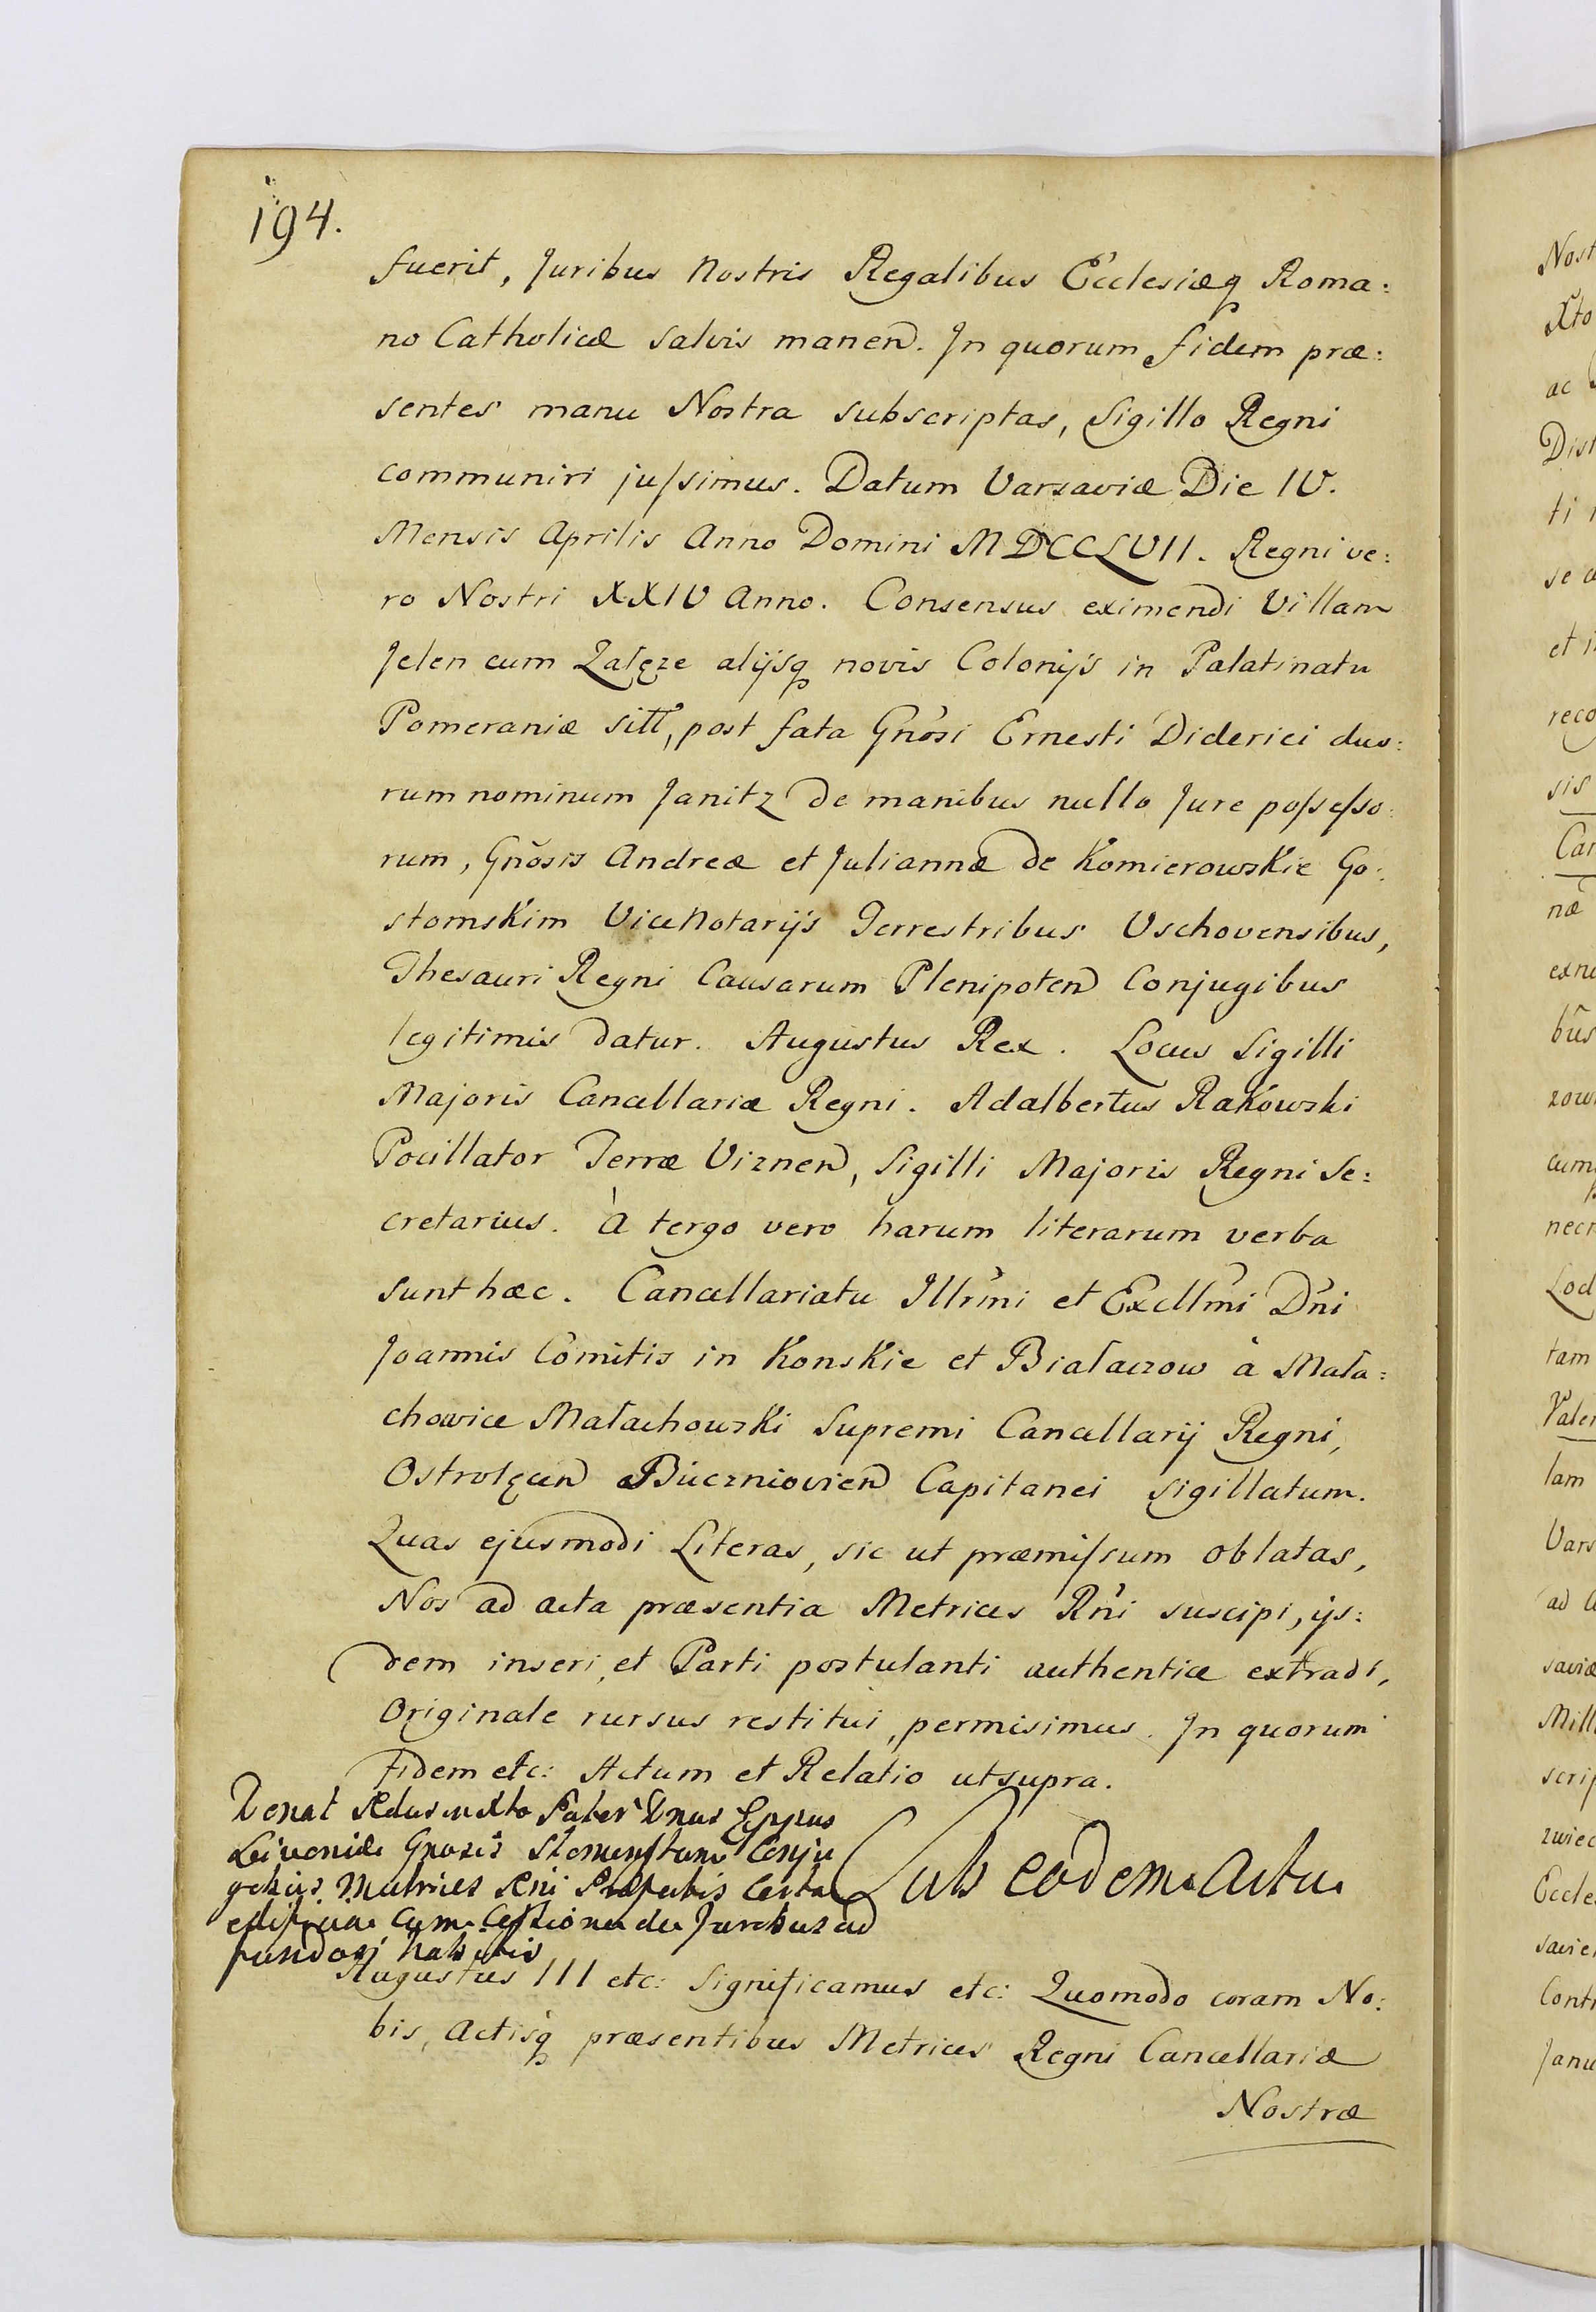 194.
fuerit, Juribus Nostris Regalibus Ecclesiæq Roma:
no Catholicæ salvis manen. In quorum fidem præ:
sentes manu Nostra subscriptas, Sigillo Regni
communiri jussimus. Datum Varsaviæ Die IV.
Mensis Aprilis Anno Domini MDCCLVII. Regni ve:
ro Nostri XXIV Anno. Consensus eximendi Villam
Jelen cum Załęze alijsq novis Colonijs in Palatinatu
Pomeraniæ sitt, post fata Gnosi Ernesti Diderici duo:
rum nominum Janitz de manibus nullo Jure possesso:
rum, Gnosis Andreæ et Juliannæ de Komierowskie Go:
stomskim ViceNotarijs Terrestribus Vschovensibus,
Thesauri Regni Causarum Plenipoten Conjugibus
legitimis datur. Augustus Rex. Locus Sigilli
Majoris Cancellariæ Regni. Adalbertus Rakowski
Pocillator Terræ Viznen, Sigilli Majoris Regni Se:
cretarius. à tergo vero harum literarum verba
sunt hæc. Cancellariatu Illrmi et Excllmi Dni
Joannis Comitis in Konskie et Białaczow à Mała:
chowice Małachowski Supremi Cancellarij Regni,
Ostrołęcen Capitanei sigillatum.
Quas ejusmodi Literas, sic ut præmissum oblatas,
Nos ad acta præsentia Metrices Rni suscipi, ijs:
dem inseri, et Parti postulanti authentice extradi,
Originale rursus restitui, permisimus. In quorum
fidem etc: Actum et Relatio utsupra.
Pater Dnus Eppus
Livoniæ Gnosis Conju
gibus Metrices Rni Præfectis certa
cum Cessione de Juribus ad
fundos habitis
Sub eodem Actu
Augustus III etc: Significamus etc: Quomodo coram No:
bis, Actisq præsentibus Metrices Regni Cancellariæ
Nostræ